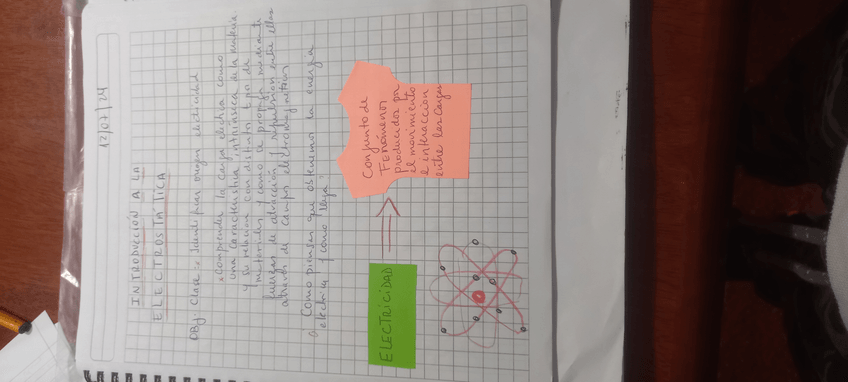 12/07/24
INTRODUCCIÓN A LA
ELECTROSTATICA
OBJ Clase: Identificar origen electricidad
Comprender la carga electrica como
una Caracteristica intrinsica de la materia
y su relación con distinto tipo de
materiales y como se propaga mediante
fuerzas de atracción y repulsion entre ellas
através de campos electromagneticos
Como piensas que obtenemos la energia
electrica y como llega
ELECTRICIDAD
Conjunto de
Fenómenos
producidos por
el movimiento
e interacción
entre las cargas